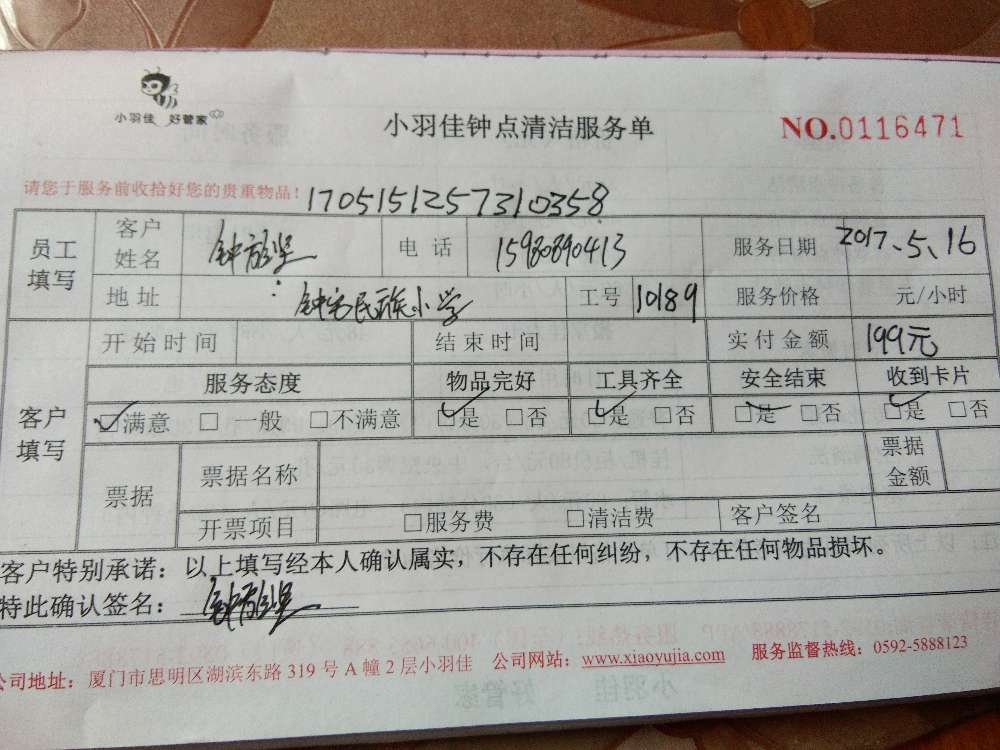 小羽佳 好管家
小羽佳钟点清洁服务单
NO.0116471
请您于服务前收拾好您的贵重物品！
1705151257310358
员工填写 客户姓名 钟 电话 15980890413 服务日期 2017.5.16
地址 钟宅民族小学 工号 10189 服务价格 元/小时
客户填写 开始时间 结束时间 实付金额 199元
服务态度 物品完好 工具齐全 安全结束 收到卡片
☑满意 □一般 □不满意 ☑是 □否 ☑是 □否 ☑是 □否 ☑是 □否
票据 票据名称 票据金额
开票项目 □服务费 □清洁费 客户签名
客户特别承诺：以上填写经本人确认属实，不存在任何纠纷，不存在任何物品损坏。
特此确认签名： 钟
公司地址：厦门市思明区湖滨东路 319 号 A 幢 2 层小羽佳 公司网站：www.xiaoyujia.com 服务监督热线：0592-5888123